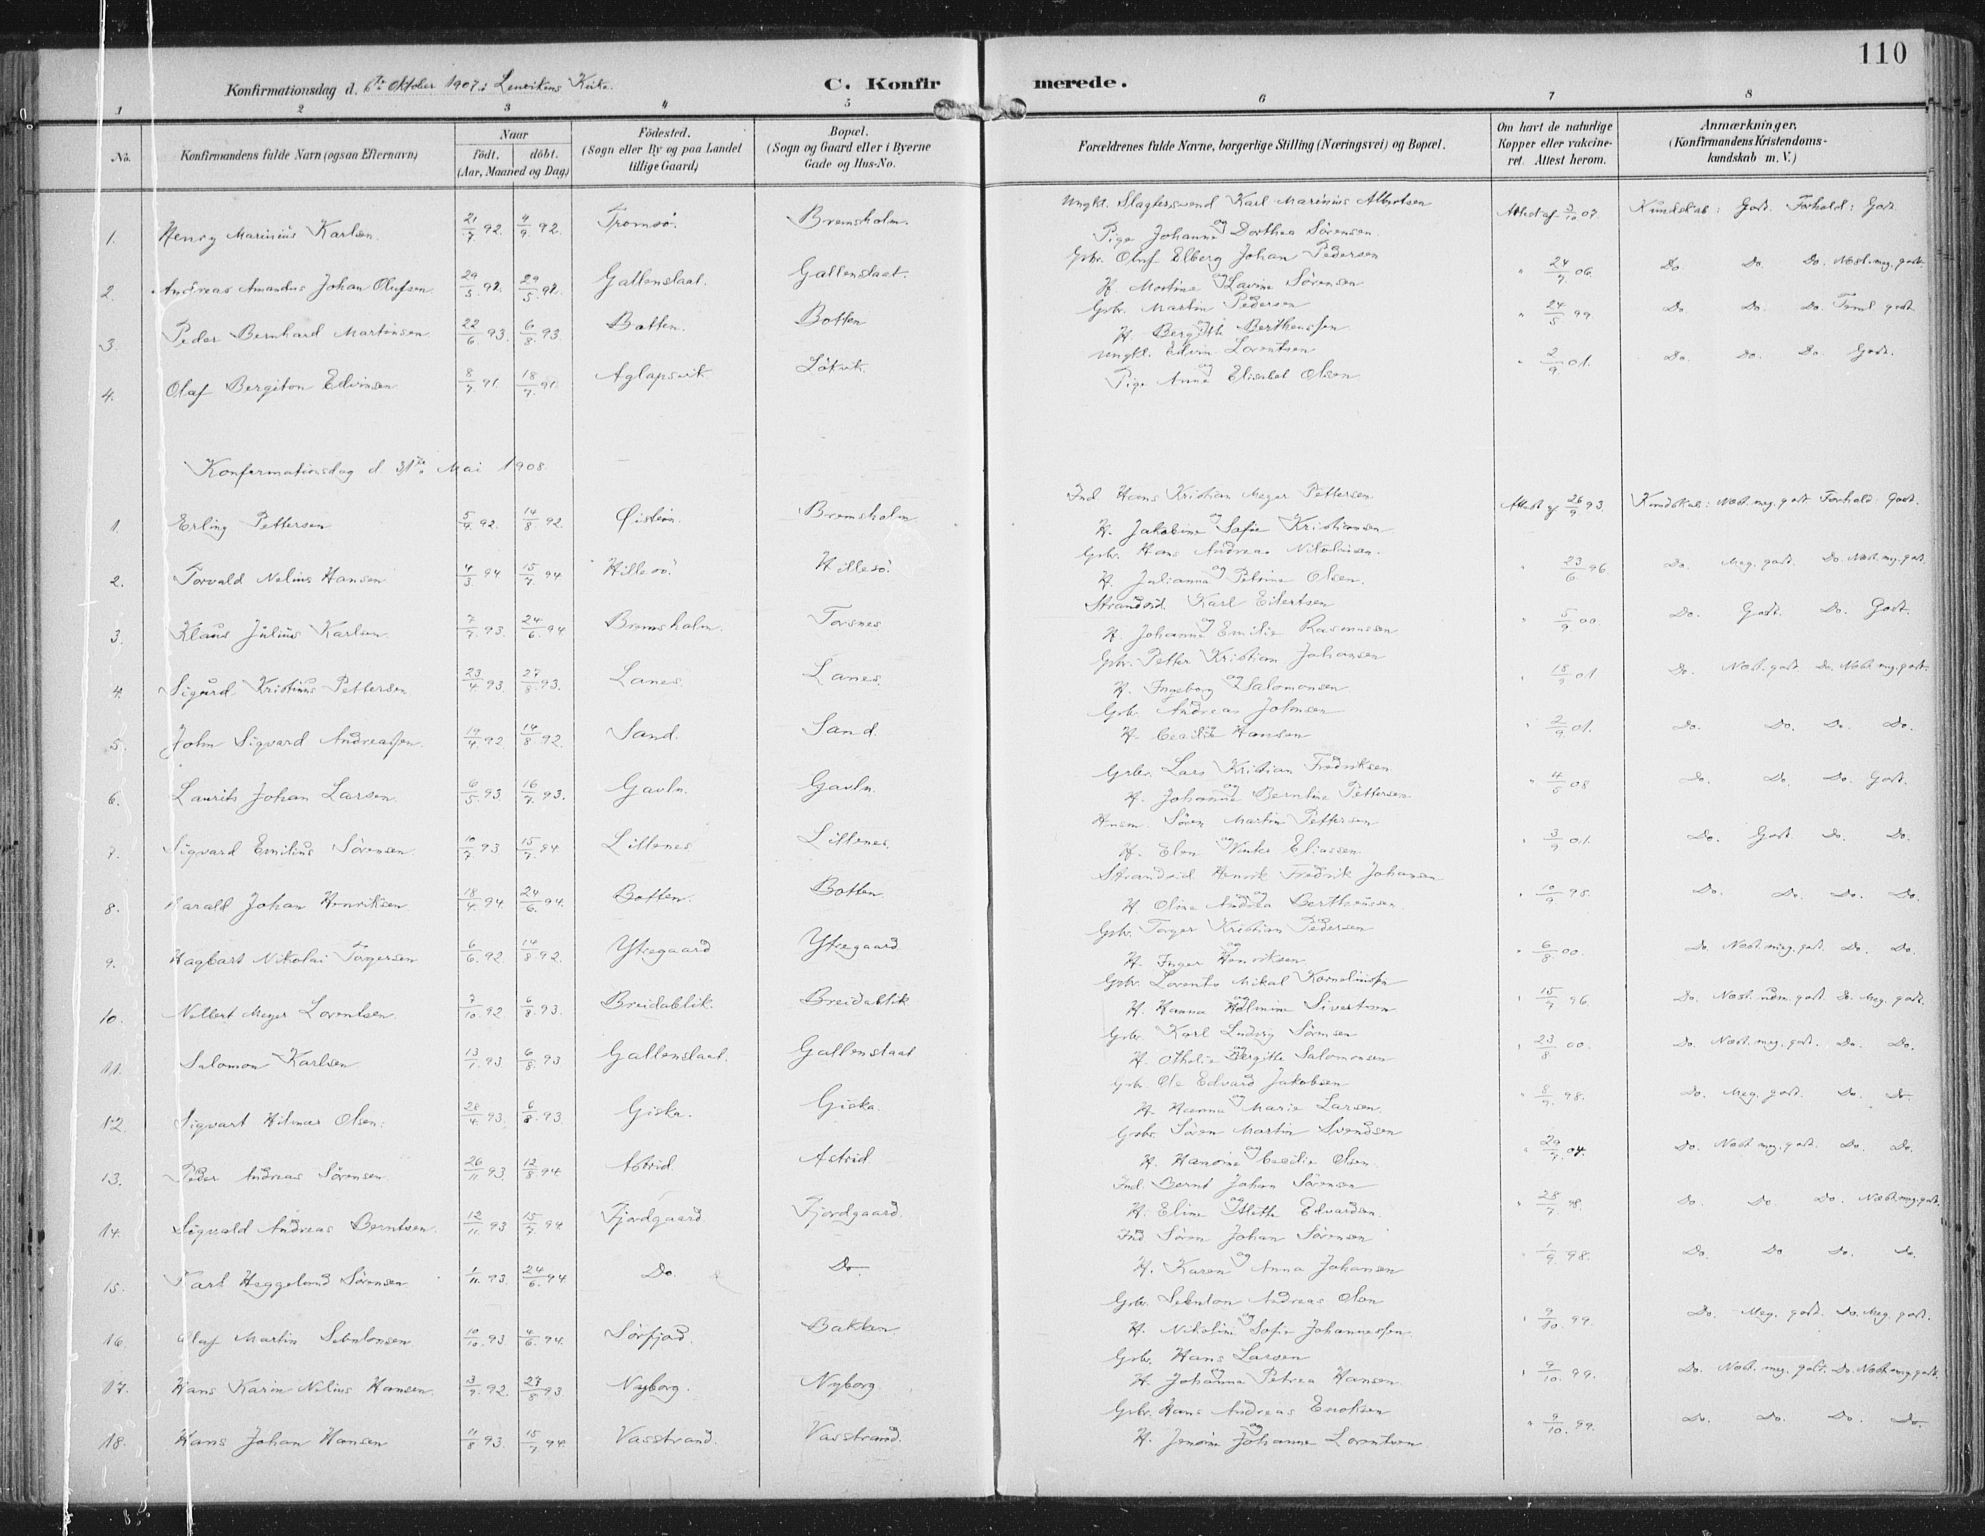 110
Konfirmationsdag d. 6te Oktober 1907 i Lenvikens Kirke.
C. Konfirmerede.
1 2 3 4 5 6 7 8
No.
Konfirmandens fulde Navn (ogsaa Efternavn)
Naar
födt. döbt.
(Aar, Maaned og Dag)
Födested.
(Sogn eller By og paa Landet
tillige Gaard)
Bopæl.
(Sogn og Gaard eller i Byerne
Gade og Hus-No.
Forældrenes fulde Navne, borgerlige Stilling (Næringsvei) og Bopæl.
Om havt de naturlige
Kopper eller vakcine-
ret. Attest herom.
Anmærkninger.
(Konfirmandens Kristendoms-
kundskab m. V.)
1. Henry Marinius Karlsen. 21/7 92. 4/9 92. Tromsö. Bremsholm. Ungkl. Slagtersvend Karl Marinius Albertsen og Pige Johanne Dorthea Sörensen. Attest af 3/10 07. Kundskab: Godt. Forhold: Godt.
2. Andreas Amandus Johan Olufsen 29/3 92. 29/5 92. Gallenslaat. Gallenslaat. Gbr. Oluf Elberg Johan Pedersen og H. Martine Lavine Sörensen " 24/9 06. Do Do. Do. Mest. meg. godt.
3. Peder Bernhard Martinsen 22/6 93. 6/8 93. Botten. Botten Gbr. Martin Pedersen og H. Bergith Berthenssen " 24/5 99. Do Do. Do. Teml. godt.
4. Olaf Bergiton Edvinsen 8/7 91. 18/9 91. Aglapsvik. Lökvik. Ungkl. Edvin Lorentsen og Pige Anna Elisabet Olsen " 2/9 01. Do. Do. Do. Godt.
Konfirmationsdag d. 31te Mai 1908.
1. Erling Pettersen 5/4 92. 14/8 92 Öisteön. Bremsholm Ind. Hans Kristian Meyer Pettersen og H. Jakobine Sofie Kristiansen Attest af 26/9 93. Kundskab: Mest. meg. godt Forhold: Godt.
2. Torvald Nelius Hansen 4/3 94 15/7 94 Hillesö. Hillesö. Gbr. Hans Andreas Nikolaisen. og H. Julianna Petrine Olsen. " 23/6 96 Do. Meg. godt. Do. Mest. meg. godt.
3. Klaus Julius Karlsen 7/7 93. 24/6 94 Bremsholm. Torsnes Strandsid. Karl Eilertsen og H. Johanna Emilie Rasmussen " 5/9 00. Do. Godt. Do. Godt.
4. Sigurd Kristius Pettersen 23/4 93. 27/8 93. Lanes. Lanes. Gbr. Petter Kristian Johansen og H. Ingeborg Salomonsen " 18/9 01 Do. Mest. godt Do. Mest meg. godt.
5. John Sigvard Andreassen. 19/4 92. 14/8 92. Sand. Sand. Gbr. Andreas Johnsen og H. Cecilie Hansen " 2/9 01. Do. Do. Do. Do.
6. Laurits Johan Larsen. 6/5 93. 16/7 93. Gavln. Gavln. Gbr. Lars Kristian Fredriksen og H. Johanne Berntine Pettersen. " 4/5 08 Do. Do. Do. Godt.
7. Sigvard Emilius Sörensen 10/7 93 15/7 94 Littenes Littenes. Husm. Sören Martin Pettersen og H. Elen Vinter Eliassen " 3/9 01. Do. Godt. Do. Do.
8. Harald Johan Henriksen 18/4 94. 24/6 94. Botten. Botten Strandsid Henrik Fredrik Johansen og H. Oline Andrea Berthensen. " 10/9 95. Do. Do. Do. Do.
9. Hagbart Nikolai Torgersen 6/6 92. 14/8 92. Ytregaard Ytregaard Gbr. Torger Kristian Pedersen og H. Inger Henriksen " 6/8 00. Do. Mest meg. godt. Do. Do.
10. Nelbert Meyer Lorentsen. 7/10 92 6/8 93. Breidablik. Breidablik Gbr. Lorents Mikal Korneliussen og H. Hanna Hilmine Sivertsen " 15/9 96. Do. Mest. udm. godt. Do. Meg. godt.
11. Salomon Karlsen 13/7 93 6/8 93 Gallenslaat. Gallenslaat Gbr. Karl Ludvig Sörensen og H. Othelie Bergitte Salomonsen " 23/8 00. Do. Mest. meg. godt. Do. Do.
12. Sigvart Hilmar Olsen. 28/4 93. 6/8 93. Giska. Giska. Gbr. Ole Edvard Jakobsen og H. Hanna Marie Larsen. " 8/9 98. Do. Meg. godt. Do. Do.
13. Peder Andreas Sörensen 26/11 93. 12/8 94 Astrid. Astrid Gbr. Sören Martin Svendsen og H. Hansine Cecilie Olsen. " 29/7 04. Do. Mest meg. godt. Do. Do.
14. Sigvald Andreas Berntsen. 12/11 93 15/7 94 Fjordgaard Fjordgaard. Ind. Bernt Johan Sörensen og H. Eline Mette Edvardsen. " 28/7 98. Do. Do. Do. Mest meg. godt.
15. Karl Heggelund Sörensen 1/11 93. 24/6 94 Do. Do. Ind Sören Johan Sörensen og H. Karen Anna Johansen " 1/9 98. Do. Do Do. Do.
16. Olaf Martin Sebulonsen 10/10 93 4/6 94. Sörfjord. Bakken Gbr. Sebulon Andreas Olsen og H. Nikoline Sofie Johannessen. " 9/10 99. Do. Meg. godt. Do. Meg. godt.
17. Hans Karin Nelius Hansen. 3/7 92. 27/8 93 Nyborg. Nyborg Gbr. Hans Larsen og H. Johanna Petrea Hansen. " 9/10 99. Do. Mest. meg. godt. Do. Mest meg. godt.
18. Hans Johan Hansen 11/8 93. 15/7 94. Vasstrand. Vasstrand. Gbr. Hans Andreas Enoksen og H. Jensine Johanne Lorentsen " 9/10 99. Do. Do. Do. Do.